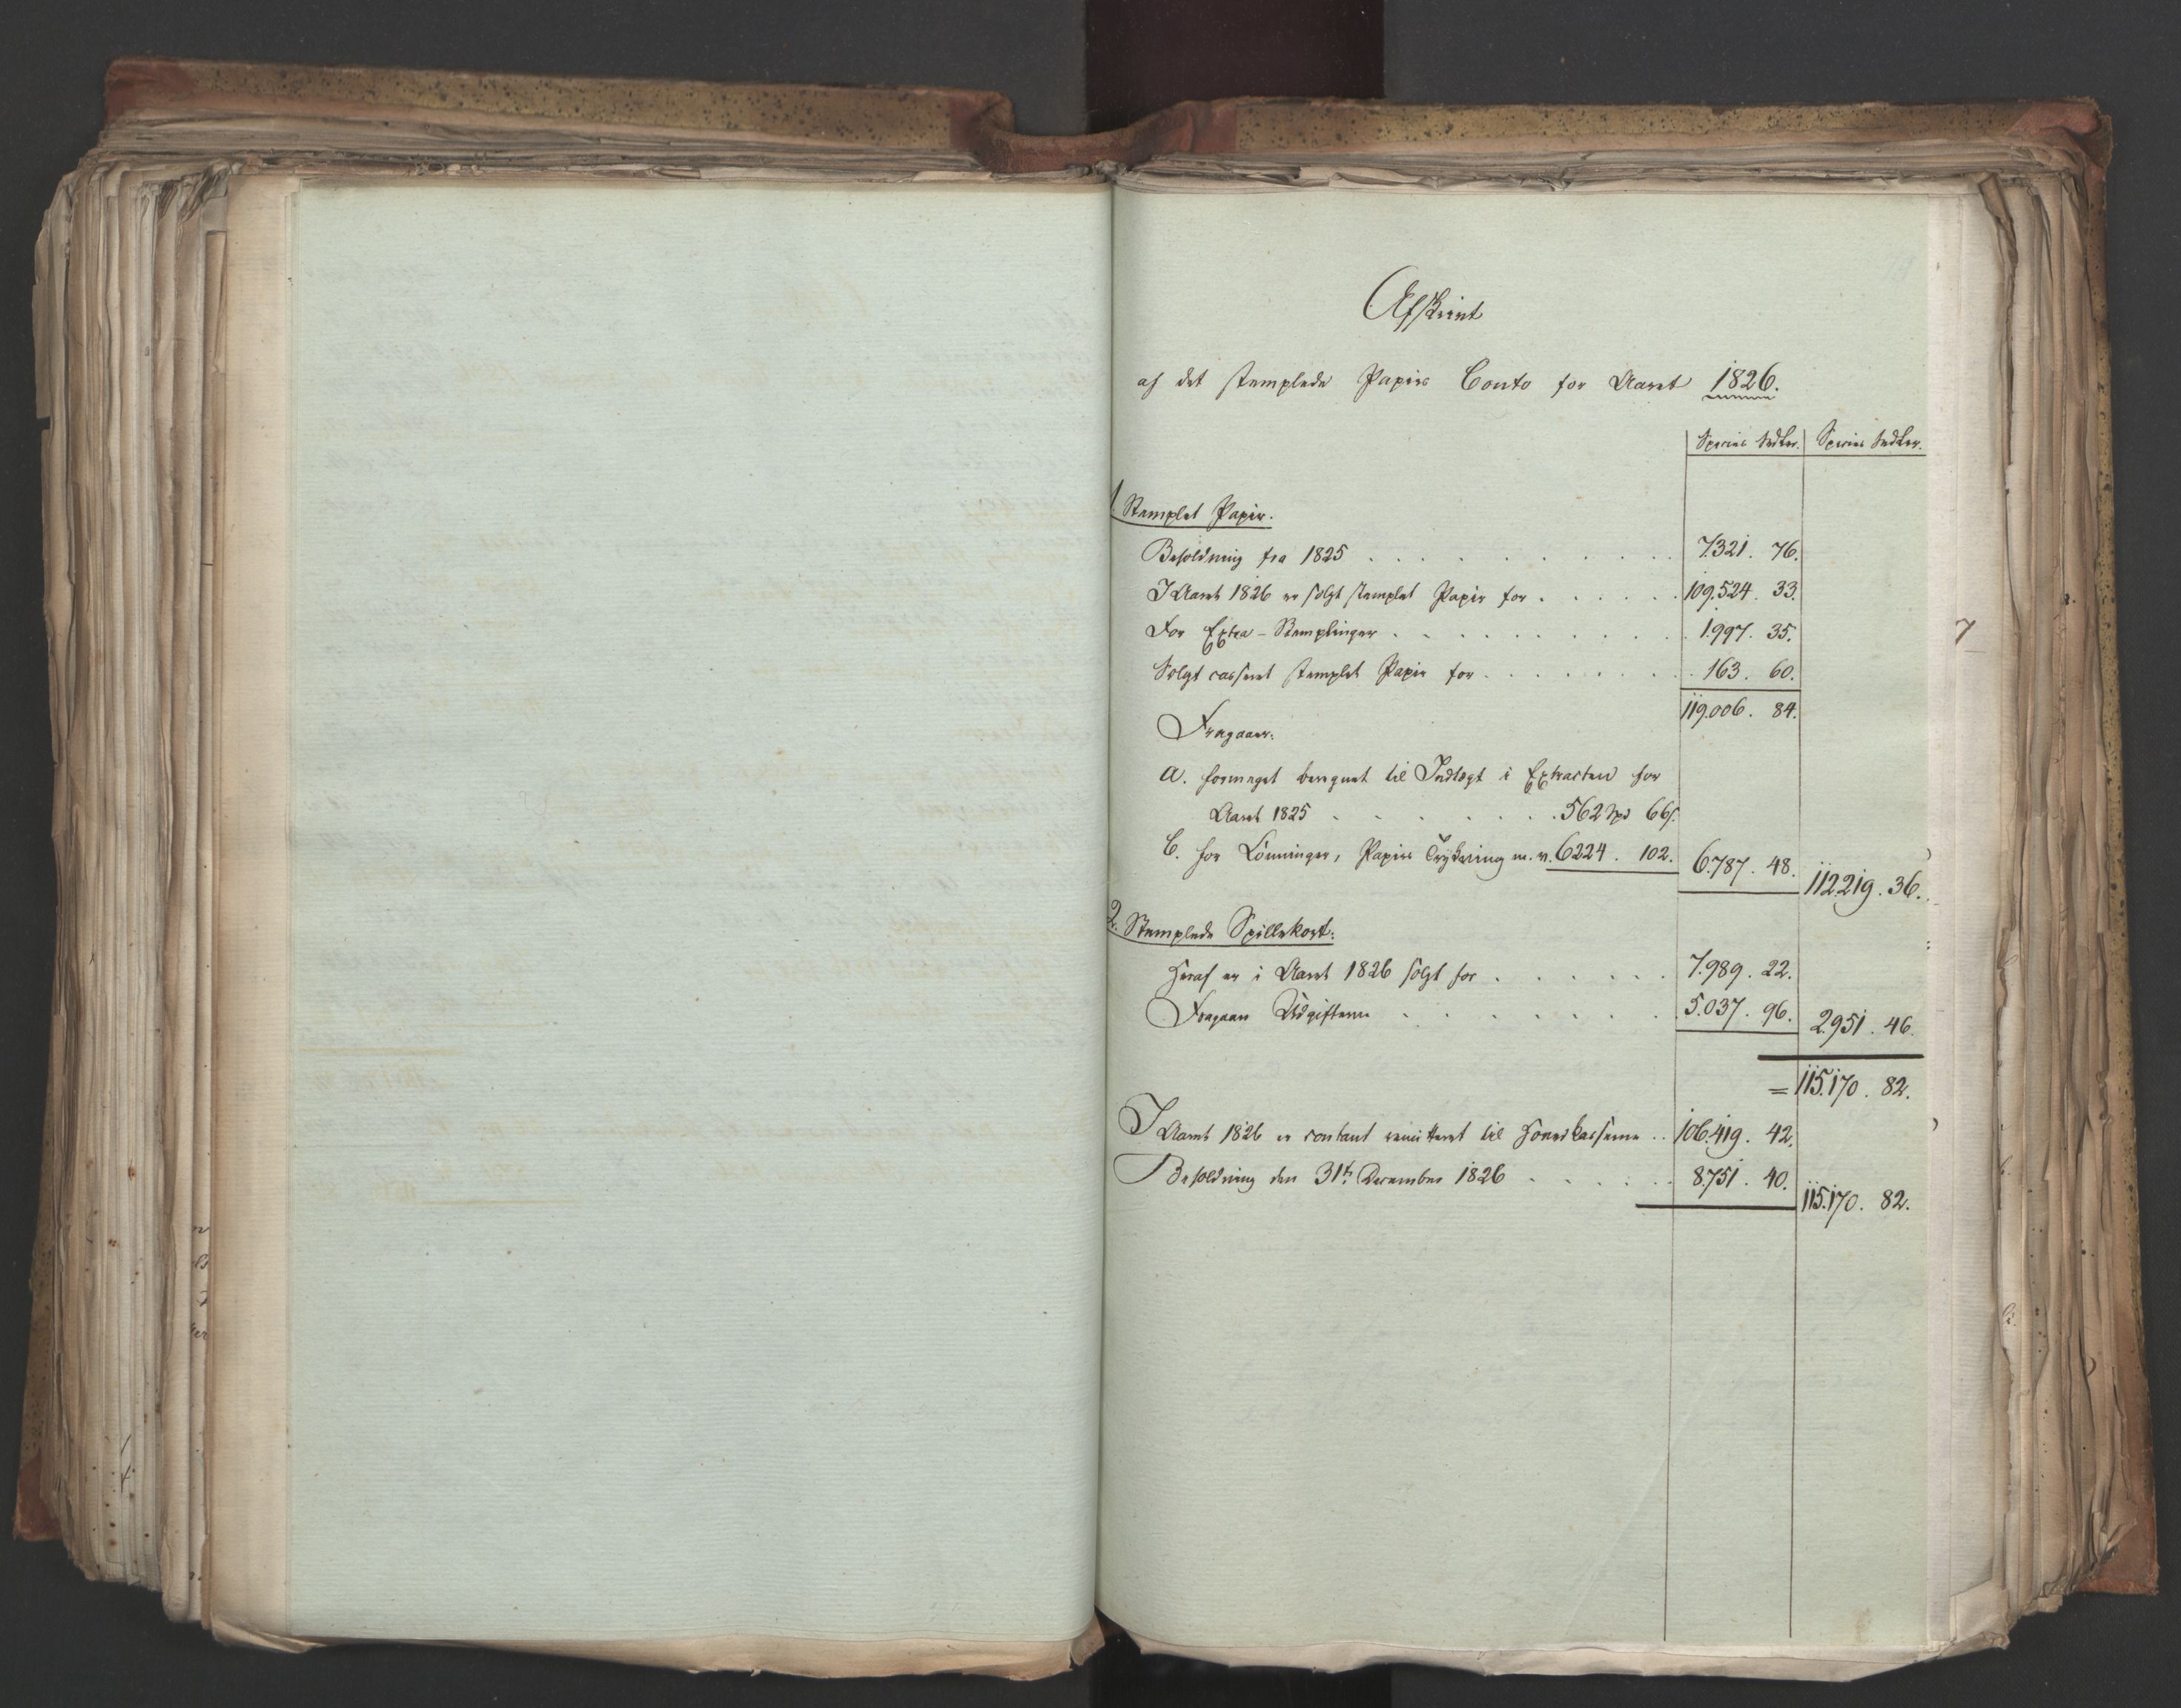 Afskrivt
af det stemplede Papirs Conto for Aaret 1826.
Species Sedler. Species Sedler.
1. Stemplet Papir.
Beholdning fra 1825 . . . 7.321. 76.
I Aaret 1826 er solgt stemplet Papir for . . . 109.524. 33.
For Extra-Stemplinger . . . 1.997. 35.
Solgt casseret stemplet Papir for . . . 163. 60.
119.006. 84.
Fragaaer:
a. formeget beregnet til Indtægt i Extracten for
Aaret 1825 . . . 562 Spd 66 s.
b. for Lønninger, Papirs Trykning m. v. 6224. 102. 6.787. 48. 112.219. 36.
2. Stemplede Spillekort:
Heraf er i Aaret 1826 solgt for . . . 7.989. 22.
Fragaaer Udgifterne . . . 5.037. 96. 2.951. 46.
= 115.170. 82.
I Aaret 1826 er contant remitteret til Hovedkasserne . . 106.419. 42.
Beholdning den 31te December 1826 . . . 8.751. 40. 115.170. 82.